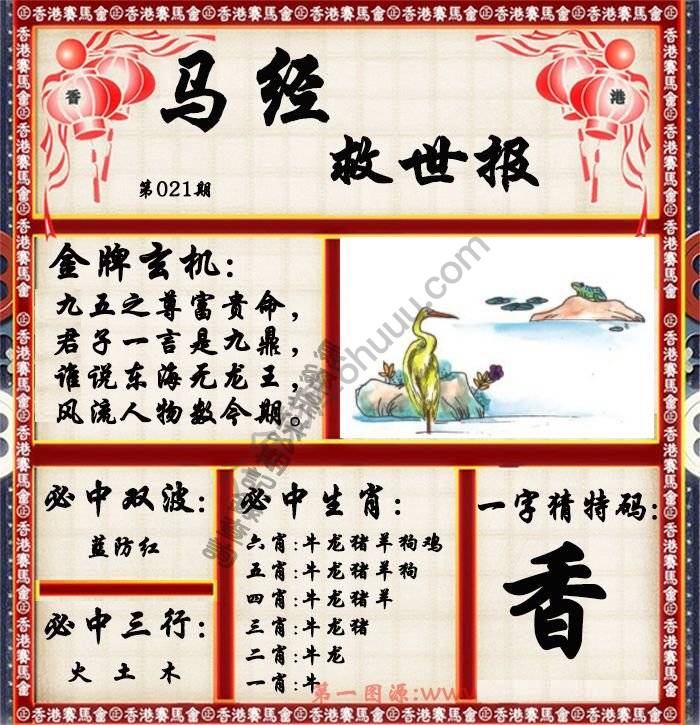 香港賽馬會
香
港
马经
救世报
第021期
金牌玄机:
九五之尊富贵命，
君子一言是九鼎，
谁说东海无龙王，
风流人物数今期。
必中双波:
蓝防红
必中三行:
火土木
必中生肖:
六肖:牛龙猪羊狗鸡
五肖:牛龙猪羊狗
四肖:牛龙猪羊
三肖:牛龙猪
二肖:牛龙
一肖:牛
一字猜特码:
香
第一图源:www